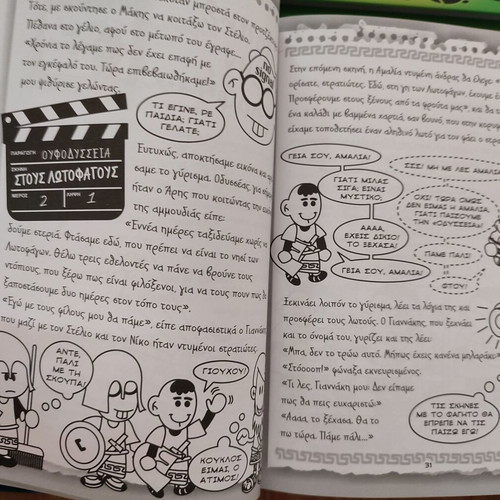 μπροστά στον
Τότε, με σκούντησε ο Μάκης να κοιτάξω τον Στέλιο.
Πέθανα στο γέλιο, αφού στο μέτωπό του έγραφε...
«Χρόνια το λέγαμε πως δεν έχει επαφή με
τον εγκέφαλό του. Τώρα επιβεβαιωθήκαμε!»
μου ψιθύρισε γελώντας.
NO SIGNAL
ΤΙ ΕΓΙΝΕ, ΡΕ
ΠΑΙΔΙΑ; ΓΙΑΤΙ
ΓΕΛΑΤΕ;
ΠΑΡΑΓΩΓΗ ΟΥΦΟΔΥΣΣΕΙΑ
ΣΚΗΝΗ
ΣΤΟΥΣ ΛΩΤΟΦΑΓΟΥΣ
ΜΕΡΟΣ 2 ΛΗΨΗ 1
Ευτυχώς, αποκτήσαμε εικόνα και
σαμε το γύρισμα. Οδυσσέας, για
ήταν ο Άρης που κοιτώντας την
της αμμουδιάς είπε:
«Εννέα ημέρες ταξιδεύαμε χωρίς να
δούμε στεριά. Φτάσαμε εδώ, που πρέπει να είναι το νησί των
Λωτοφάγων. Θέλω τρεις εθελοντές να πάνε να βρούνε τους
ντόπιους, που ξέρω πως είναι φιλόξενοι, για να τους πουν πως θα
ξαποστάσουμε δυο ημέρες στον τόπο τους».
«Εγώ με τους φίλους μου θα πάμε», είπε αποφασιστικά ο Γιαννάκης
που μαζί με τον Στέλιο και τον Νίκο ήταν ντυμένοι στρατιώτες.
ΑΝΤΕ,
ΠΑΛΙ
ΜΕ ΤΗ
ΣΚΟΥΠΑ!
ΓΙΟΥΧΟΥ!
ΚΟΥΚΛΟΣ
ΕΙΜΑΙ, Ο
ΑΤΙΜΟΣ!
Στην επόμενη σκηνή, η Αμαλία ντυμένη άνδρας θα έλεγε:
ορίσατε, στρατιώτες. Εδώ, στη γη των Λωτοφάγων, έχουμε
Προσφέρουμε στους ξένους από τα φρούτα μας». και θα
ένα καλάθι με βαμμένα χαρτιά, σαν βουνό, που στην
είχαμε τοποθετήσει έναν αληθινό λωτό για τον φάει ο
ΓΕΙΑ ΣΟΥ, ΑΜΑΛΙΑ!
ΣΣΣ! ΜΗ ΜΕ ΛΕΣ ΑΜΑΛΙΑ
ΓΙΑΤΙ ΜΙΛΑΣ
ΣΙΓΑ; ΕΙΝΑΙ
ΜΥΣΤΙΚΟ;
ΟΧΙ! ΤΩΡΑ ΟΜΩΣ
ΔΕΝ ΕΙΜΑΙ Η ΑΜΑΛΙΑ,
ΓΙΑΤΙ ΠΑΙΖΟΥΜΕ
ΤΗΝ «ΟΔΥΣΣΕΙΑ»
ΑΑΑΑ,
ΕΧΕΙΣ ΔΙΚΙΟ!
ΤΟ ΞΕΧΑΣΑ!
ΠΑΜΕ ΠΑΛΙ!
ΓΕΙΑ ΣΟΥ, ΑΜΑΛΙΑ!
ΦΤΟΥ!
Ξεκινάει λοιπόν το γύρισμα, λέει τα λόγια της και
προσφέρει τους λωτούς. Ο Γιαννάκης, που ξεχνάει
και το όνομά του, γυρίζει και της λέει:
«Μπα, δεν το τρώω αυτό. Μήπως έχεις κανένα μπηφτέκι;»
«Στόοοοπ!» φώναξα εκνευρισμένος.
«Τι λες, Γιαννάκη μου; Δεν είπαμε
πως θα πεις ευχαριστώ;»
«Αααα, το ξέχασα. Θα το
πω τώρα. Πάμε πάλι...»
ΤΙΣ ΣΚΗΝΕΣ
ΜΕ ΤΟ ΦΑΓΗΤΟ ΘΑ
ΕΠΡΕΠΕ ΝΑ ΤΙΣ
ΠΑΙΞΩ ΕΓΩ!
31